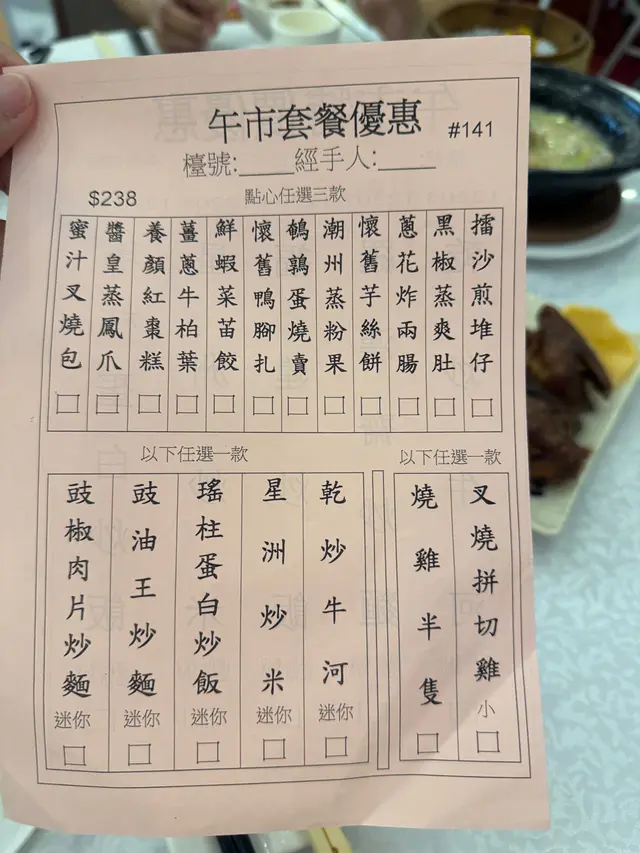 午市套餐優惠
#141
檯號:____經手人:____
$238
點心任選三款
擂沙煎堆仔
黑椒蒸爽肚
蔥花炸兩腸
懷舊芋絲餅
潮州蒸粉果
鵪鶉蛋燒賣
懷舊鴨腳扎
鮮蝦菜苗餃
薑蔥牛柏葉
養顏紅棗糕
醬皇蒸鳳爪
蜜汁叉燒包
以下任選一款
叉燒拼切雞 小
燒雞半隻
以下任選一款
乾炒牛河 迷你
星洲炒米 迷你
瑤柱蛋白炒飯 迷你
豉油王炒麵 迷你
豉椒肉片炒麵 迷你